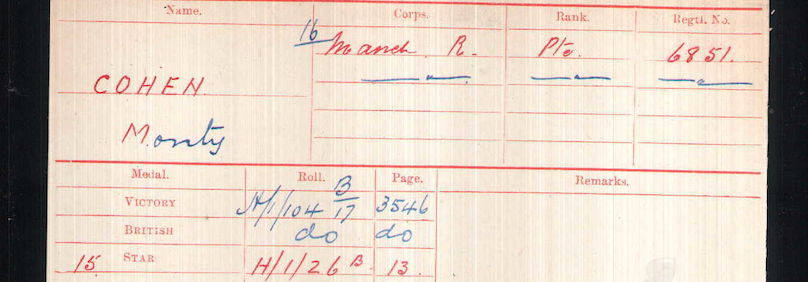 Name. Corps. Rank. Regtl. No.
16 Manch R. Pte. 6851.
COHEN
Monty
Medal. Roll. Page. Remarks.
VICTORY H/1/104 B 17 3546
BRITISH do do
15 STAR H/1/26 B. 13.